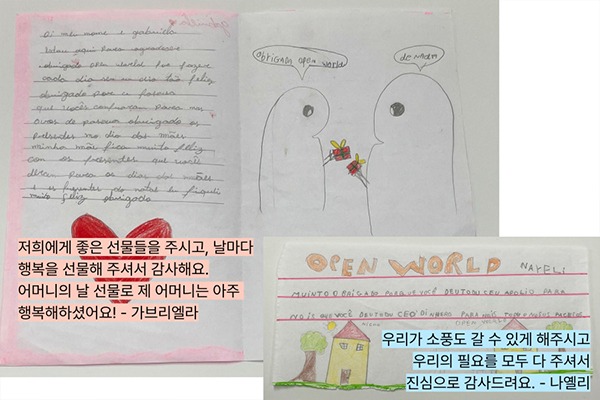 Oi meu nome é gabriella
estou aqui para agradecer
obrigado open world por fazer
cada dia ser um dia tão feliz
obrigado por a pascoa
que vocês compraram para nos
ovos de pascoa obrigado os
presentes no dia das mães
minha mãe fica muito feliz
com os presentes que vocês
deram para os dias das mães
e os presentes do natal eu fiquei
muito feliz obrigado
obrigada open world
de nada
저희에게 좋은 선물들을 주시고, 날마다
행복을 선물해 주셔서 감사해요.
어머니의 날 선물로 제 어머니는 아주
행복해하셨어요! - 가브리엘라
OPEN WORLD NAYELI
MUINTO OBRIGADO PORQUE VOCÊ DEU TODU CEU APOLIO PARA
NOIS QUE VOCÊ DEU TODU CEO DINHEIRO PARA NOIS TODO
OPEN WORLD
우리가 소풍도 갈 수 있게 해주시고
우리의 필요를 모두 다 주셔서
진심으로 감사드려요. - 나엘리